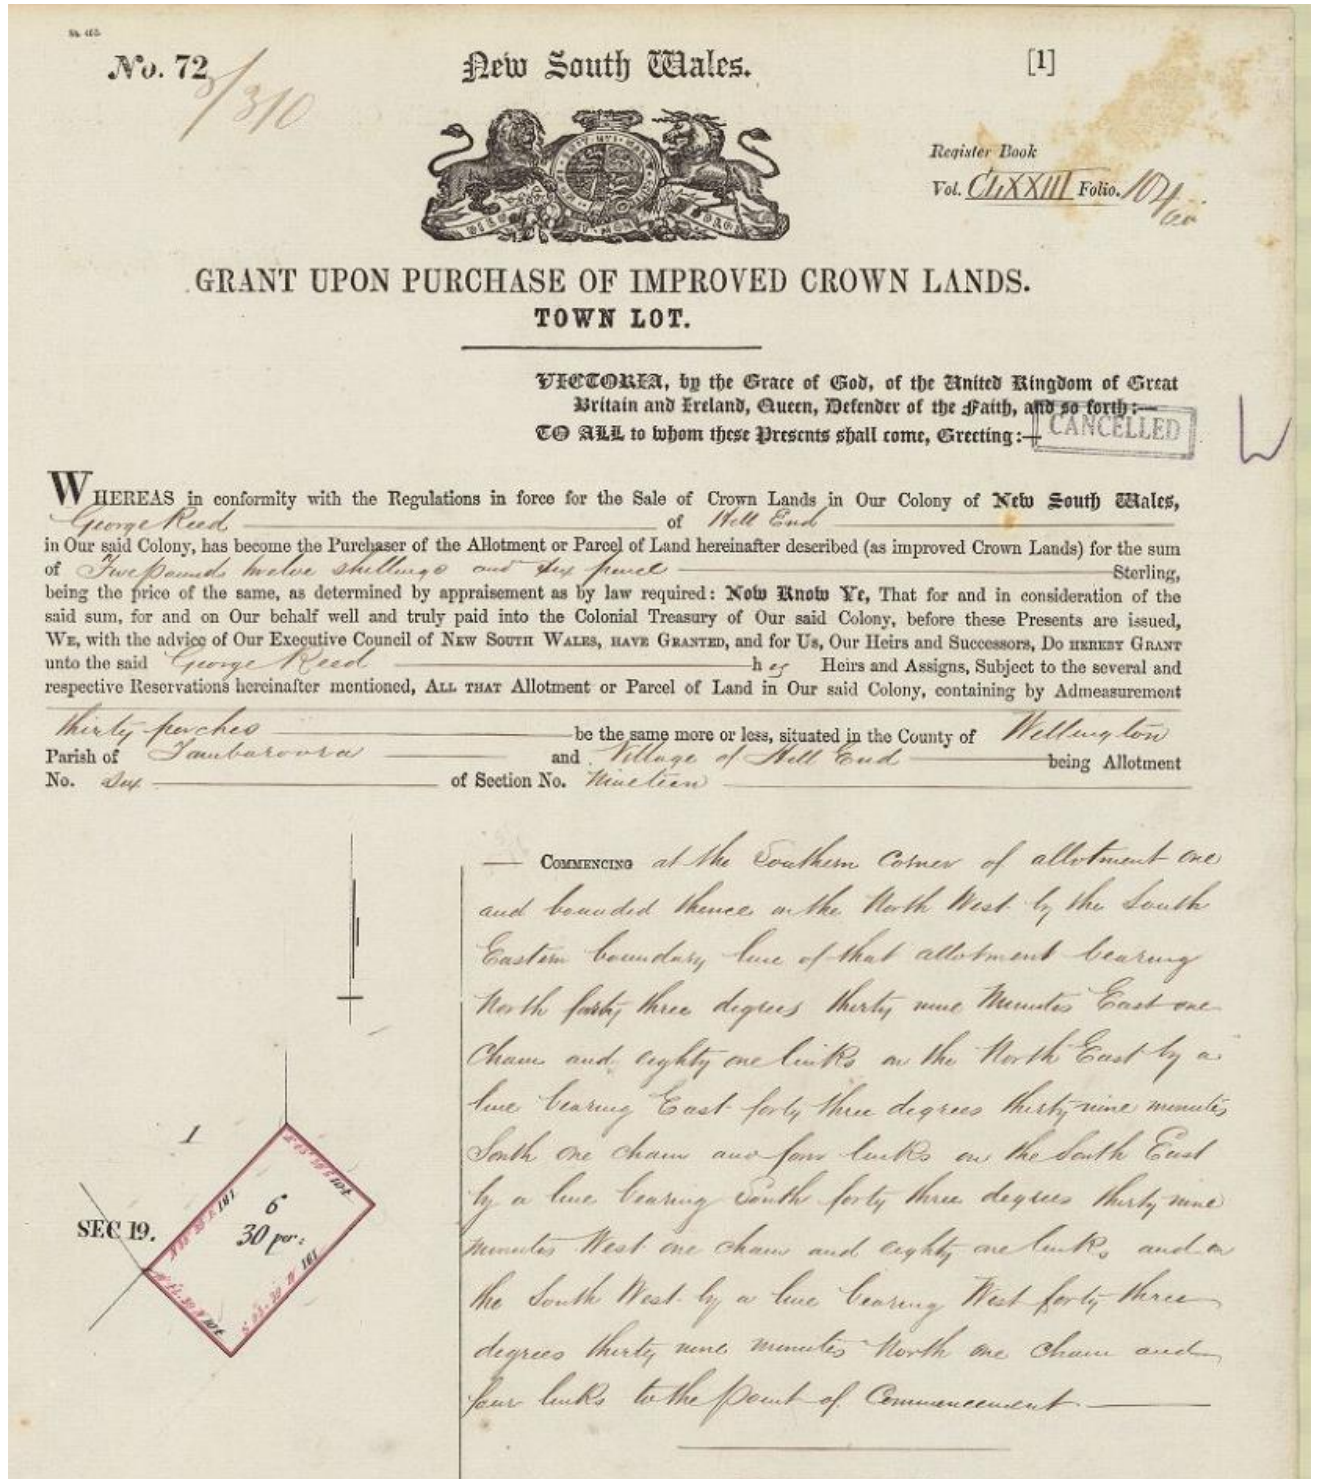 No. 72
3/310
New South Wales.
[1]
Register Book
Vol. CLXXIII Folio. 104
GRANT UPON PURCHASE OF IMPROVED CROWN LANDS.
TOWN LOT.
VICTORIA, by the Grace of God, of the United Kingdom of Great
Britain and Ireland, Queen, Defender of the Faith, and so forth:—
TO ALL to whom these Presents shall come, Greeting:—
CANCELLED
WHEREAS in conformity with the Regulations in force for the Sale of Crown Lands in Our Colony of New South Wales,
George Reed of Hill End
in Our said Colony, has become the Purchaser of the Allotment or Parcel of Land hereinafter described (as improved Crown Lands) for the sum
of Five pounds twelve shillings and six pence Sterling,
being the price of the same, as determined by appraisement as by law required: Now Know Ye, That for and in consideration of the
said sum, for and on Our behalf well and truly paid into the Colonial Treasury of Our said Colony, before these Presents are issued,
WE, with the advice of Our Executive Council of NEW SOUTH WALES, HAVE GRANTED, and for Us, Our Heirs and Successors, DO HEREBY GRANT
unto the said George Reed his Heirs and Assigns, Subject to the several and
respective Reservations hereinafter mentioned, ALL THAT Allotment or Parcel of Land in Our said Colony, containing by Admeasurement
thirty perches be the same more or less, situated in the County of Wellington
Parish of Tambaroora and Village of Hill End being Allotment
No. Six of Section No. Nineteen
— COMMENCING at the Southern Corner of allotment one
and bounded thence on the North West by the South
Eastern boundary line of that allotment bearing
North forty three degrees thirty nine Minutes East one
Chain and eighty one links on the North East by a
line bearing East forty three degrees thirty nine minutes
South one chain and four links on the South East
by a line bearing South forty three degrees thirty nine
minutes West one chain and eighty one links and on
the South West by a line bearing West forty three
degrees thirty nine minutes North one chain and
four links to the Point of Commencement
1
SEC 19.
6
30 per:
181
104
181
104